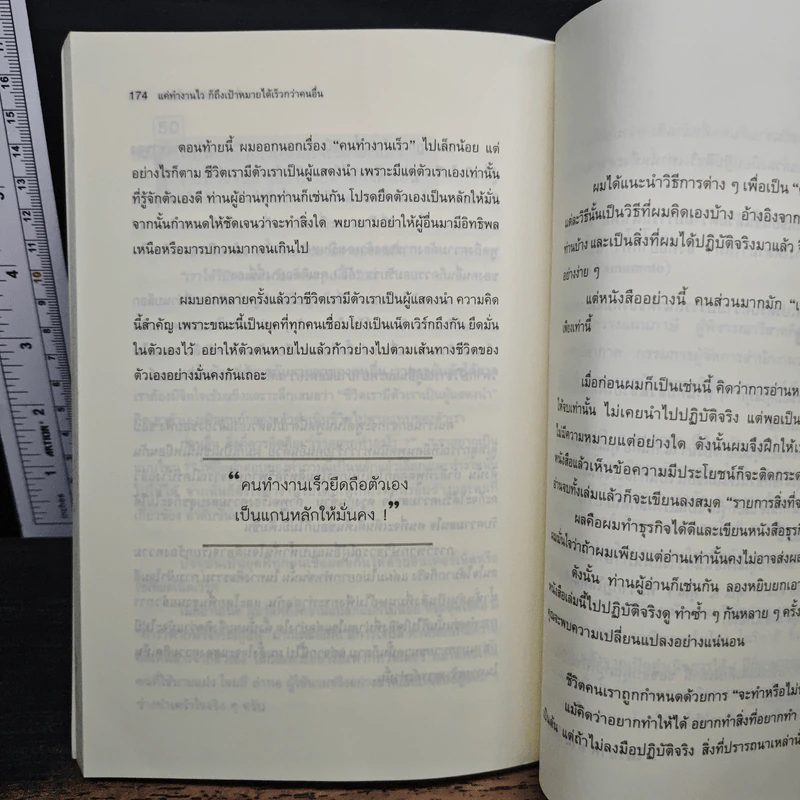 174 แค่ทำงานไว ก็ถึงเป้าหมายได้เร็วกว่าคนอื่น
ตอนท้ายนี้ ผมออกนอกเรื่อง “คนทำงานเร็ว” ไปเล็กน้อย แต่
อย่างไรก็ตาม ชีวิตเรามีตัวเราเป็นผู้แสดงนำ เพราะมีแต่ตัวเราเองเท่านั้น
ที่รู้จักตัวเองดี ท่านผู้อ่านทุกท่านก็เช่นกัน โปรดยึดตัวเองเป็นหลักให้มั่น
จากนั้นกำหนดให้ชัดเจนว่าจะทำสิ่งใด พยายามอย่าให้ผู้อื่นมามีอิทธิพล
เหนือหรือมารบกวนมากจนเกินไป
ผมบอกหลายครั้งแล้วว่าชีวิตเรามีตัวเราเป็นผู้แสดงนำ ความคิด
นี้สำคัญ เพราะขณะนี้เป็นยุคที่ทุกคนเชื่อมโยงเป็นเน็ตเวิร์กถึงกัน ยึดมั่น
ในตัวเองไว้ อย่าให้ตัวตนหายไปแล้วก้าวย่างไปตามเส้นทางชีวิตของ
ตัวเองอย่างมั่นคงกันเถอะ
“คนทำงานเร็วยึดถือตัวเอง
เป็นแกนหลักให้มั่นคง !”
ผมได้แนะนำวิธีการต่าง ๆ เพื่อเป็น
แต่ละวิธีนั้นเป็นวิธีที่ผมคิดเองบ้าง อ้างอิงจาก
ท่านบ้าง และเป็นสิ่งที่ผมได้ปฏิบัติจริงมาแล้ว
อย่างง่าย ๆ
แต่หนังสืออย่างนี้ คนส่วนมากมัก
เพียงเท่านี้
เมื่อก่อนผมก็เป็นเช่นนี้ คิดว่าการอ่าน
ให้จบเท่านั้น ไม่เคยนำไปปฏิบัติจริง แต่พอเป็น
ไม่มีความหมายแต่อย่างใด ดังนั้นผมจึงฝึกให้
หนังสือแล้วเห็นข้อความมีประโยชน์ก็จะติด
อ่านจบทั้งเล่มแล้วก็จะเขียนลงสมุด “รายการสิ่งที่
ผลคือผมทำธุรกิจได้ดีและเขียนหนังสือ
ผมมั่นใจว่าถ้าผมเพียงแต่อ่านเท่านั้นคงไม่อาจส่ง
ดังนั้น ท่านผู้อ่านก็เช่นกัน ลองหยิบยก
หนังสือเล่มนี้ไปปฏิบัติจริงดู ทำซ้ำ ๆ กันหลาย ๆ ครั้ง
คุณจะพบความเปลี่ยนแปลงอย่างแน่นอน
ชีวิตคนเราถูกกำหนดด้วยการ “จะทำหรือไม่
แม้คิดว่าอยากทำให้ได้ อยากทำสิ่งที่อยากทำ
เป็นต้น แต่ถ้าไม่ลงมือปฏิบัติจริง สิ่งที่ปรารถนาเหล่า